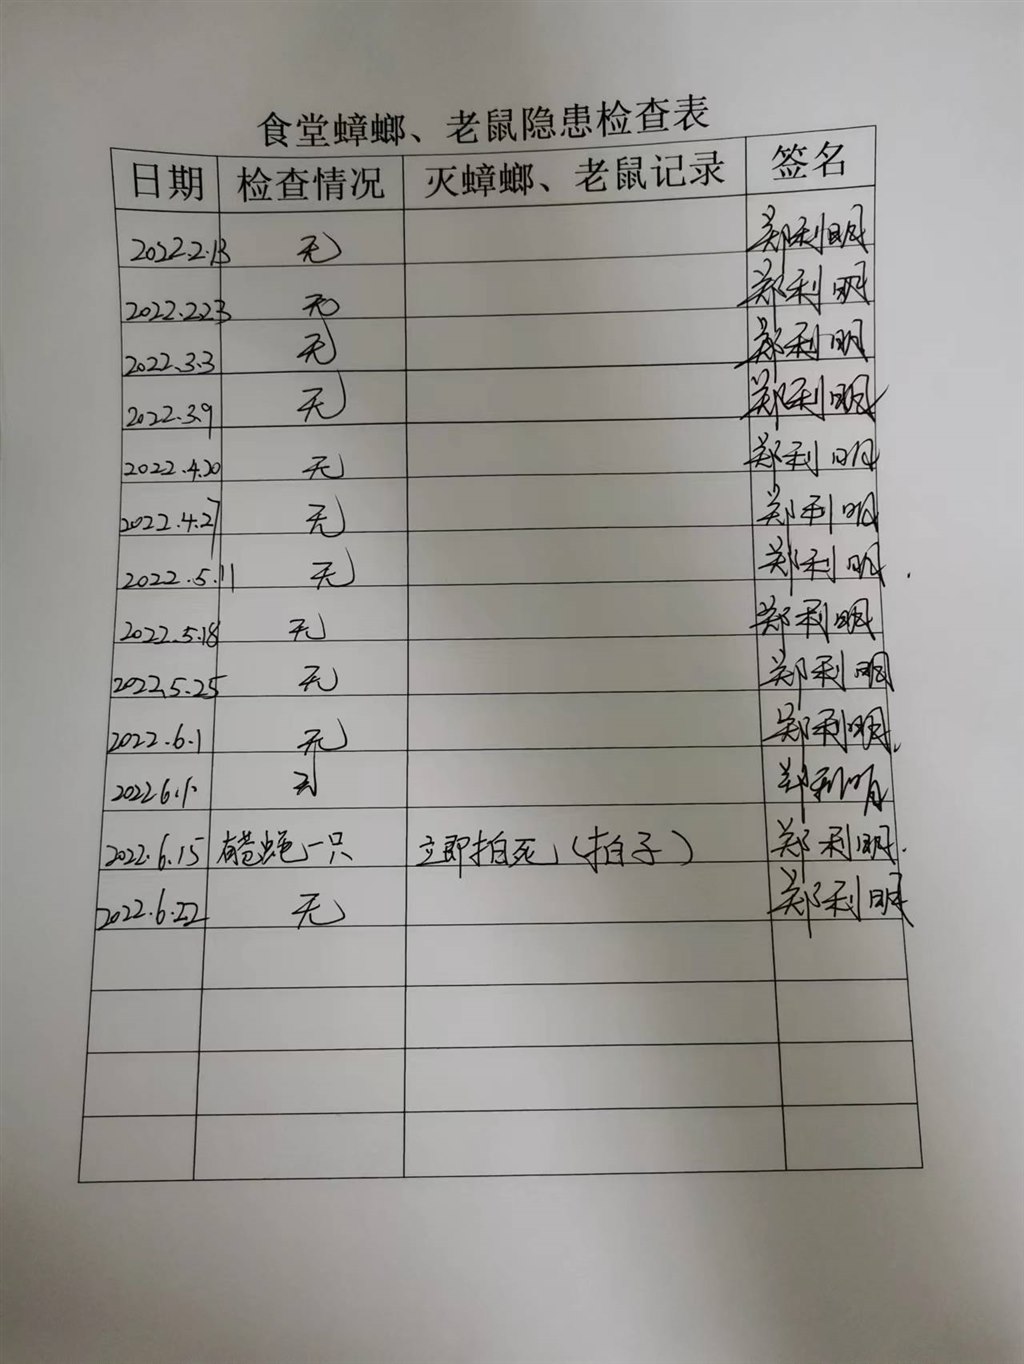 食堂蟑螂、老鼠隐患检查表
日期 检查情况 灭蟑螂、老鼠记录 签名
2022.2.13 无 郑利明
2022.2.23 无 郑利明
2022.3.3 无 郑利明
2022.3.9 无 郑利明
2022.4.20 无 郑利明
2022.4.27 无 郑利明
2022.5.11 无 郑利明
2022.5.18 无 郑利明
2022.5.25 无 郑利明
2022.6.1 无 郑利明
郑利明
2022.6.15 有苍蝇一只 立即拍死(拍子) 郑利明
2022.6.22 无 郑利明